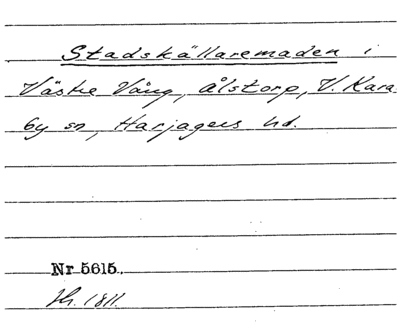 Stadskällaremaden i
Västre Vång, Ålstorp, V. Kara
by sn, Harjagers hd.
Nr 5615.
Hr. 1811.